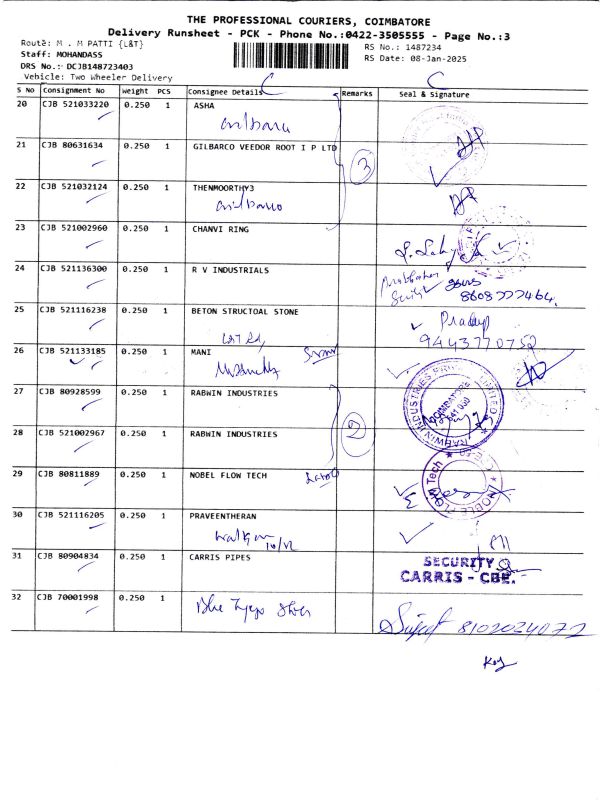 THE PROFESSIONAL COURIERS, COIMBATORE
Delivery Runsheet - PCK - Phone No.:0422-3505555 - Page No.:3
Route: M . M PATTI {L&T}
RS No.: 1487234
Staff: MOHANDASS
RS Date: 08-Jan-2025
DRS No.:- DCJB148723403
Vehicle: Two Wheeler Delivery
S No Consignment No Weight PCS Consignee Details Remarks Seal & Signature
20 CJB 521033220 0.250 1 ASHA
21 CJB 80631634 0.250 1 GILBARCO VEEDOR ROOT I P LTD
3
22 CJB 521032124 0.250 1 THENMOORTHY3
23 CJB 521002960 0.250 1 CHANVI RING
24 CJB 521136300 0.250 1 R V INDUSTRIALS
8608777464.
25 CJB 521116238 0.250 1 BETON STRUCTOAL STONE
Pradeep
9443770752
26 CJB 521133185 0.250 1 MANI
27 CJB 80928599 0.250 1 RABWIN INDUSTRIES
RABWIN INDUSTRIES PRIVATE LIMITED
COIMBATORE
641 030
28 CJB 521002967 0.250 1 RABWIN INDUSTRIES
2
29 CJB 80811889 0.250 1 NOBEL FLOW TECH
NOBLE FLOW Tech
30 CJB 521116205 0.250 1 PRAVEENTHERAN
31 CJB 80904834 0.250 1 CARRIS PIPES
SECURITY
CARRIS - CBE.
32 CJB 70001998 0.250 1
Blue
8102024072